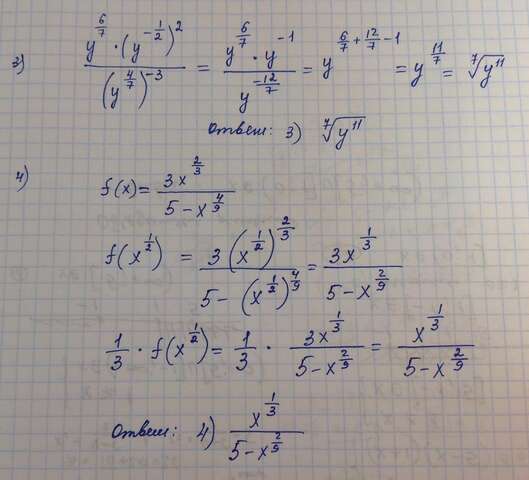 3) (y^(6/7) · (y^(-1/2))^2) / (y^(4/7))^(-3) = (y^(6/7) · y^(-1)) / y^(-12/7) = y^(6/7 + 12/7 - 1) = y^(11/7) = ⁷√(y^11)
Ответ: 3) ⁷√(y^11)
4) f(x) = 3x^(2/3) / (5 - x^(4/9))
f(x^(1/2)) = 3(x^(1/2))^(2/3) / (5 - (x^(1/2))^(4/9)) = 3x^(1/3) / (5 - x^(2/9))
1/3 · f(x^(1/2)) = 1/3 · 3x^(1/3) / (5 - x^(2/9)) = x^(1/3) / (5 - x^(2/9))
Ответ: 4) x^(1/3) / (5 - x^(2/9))